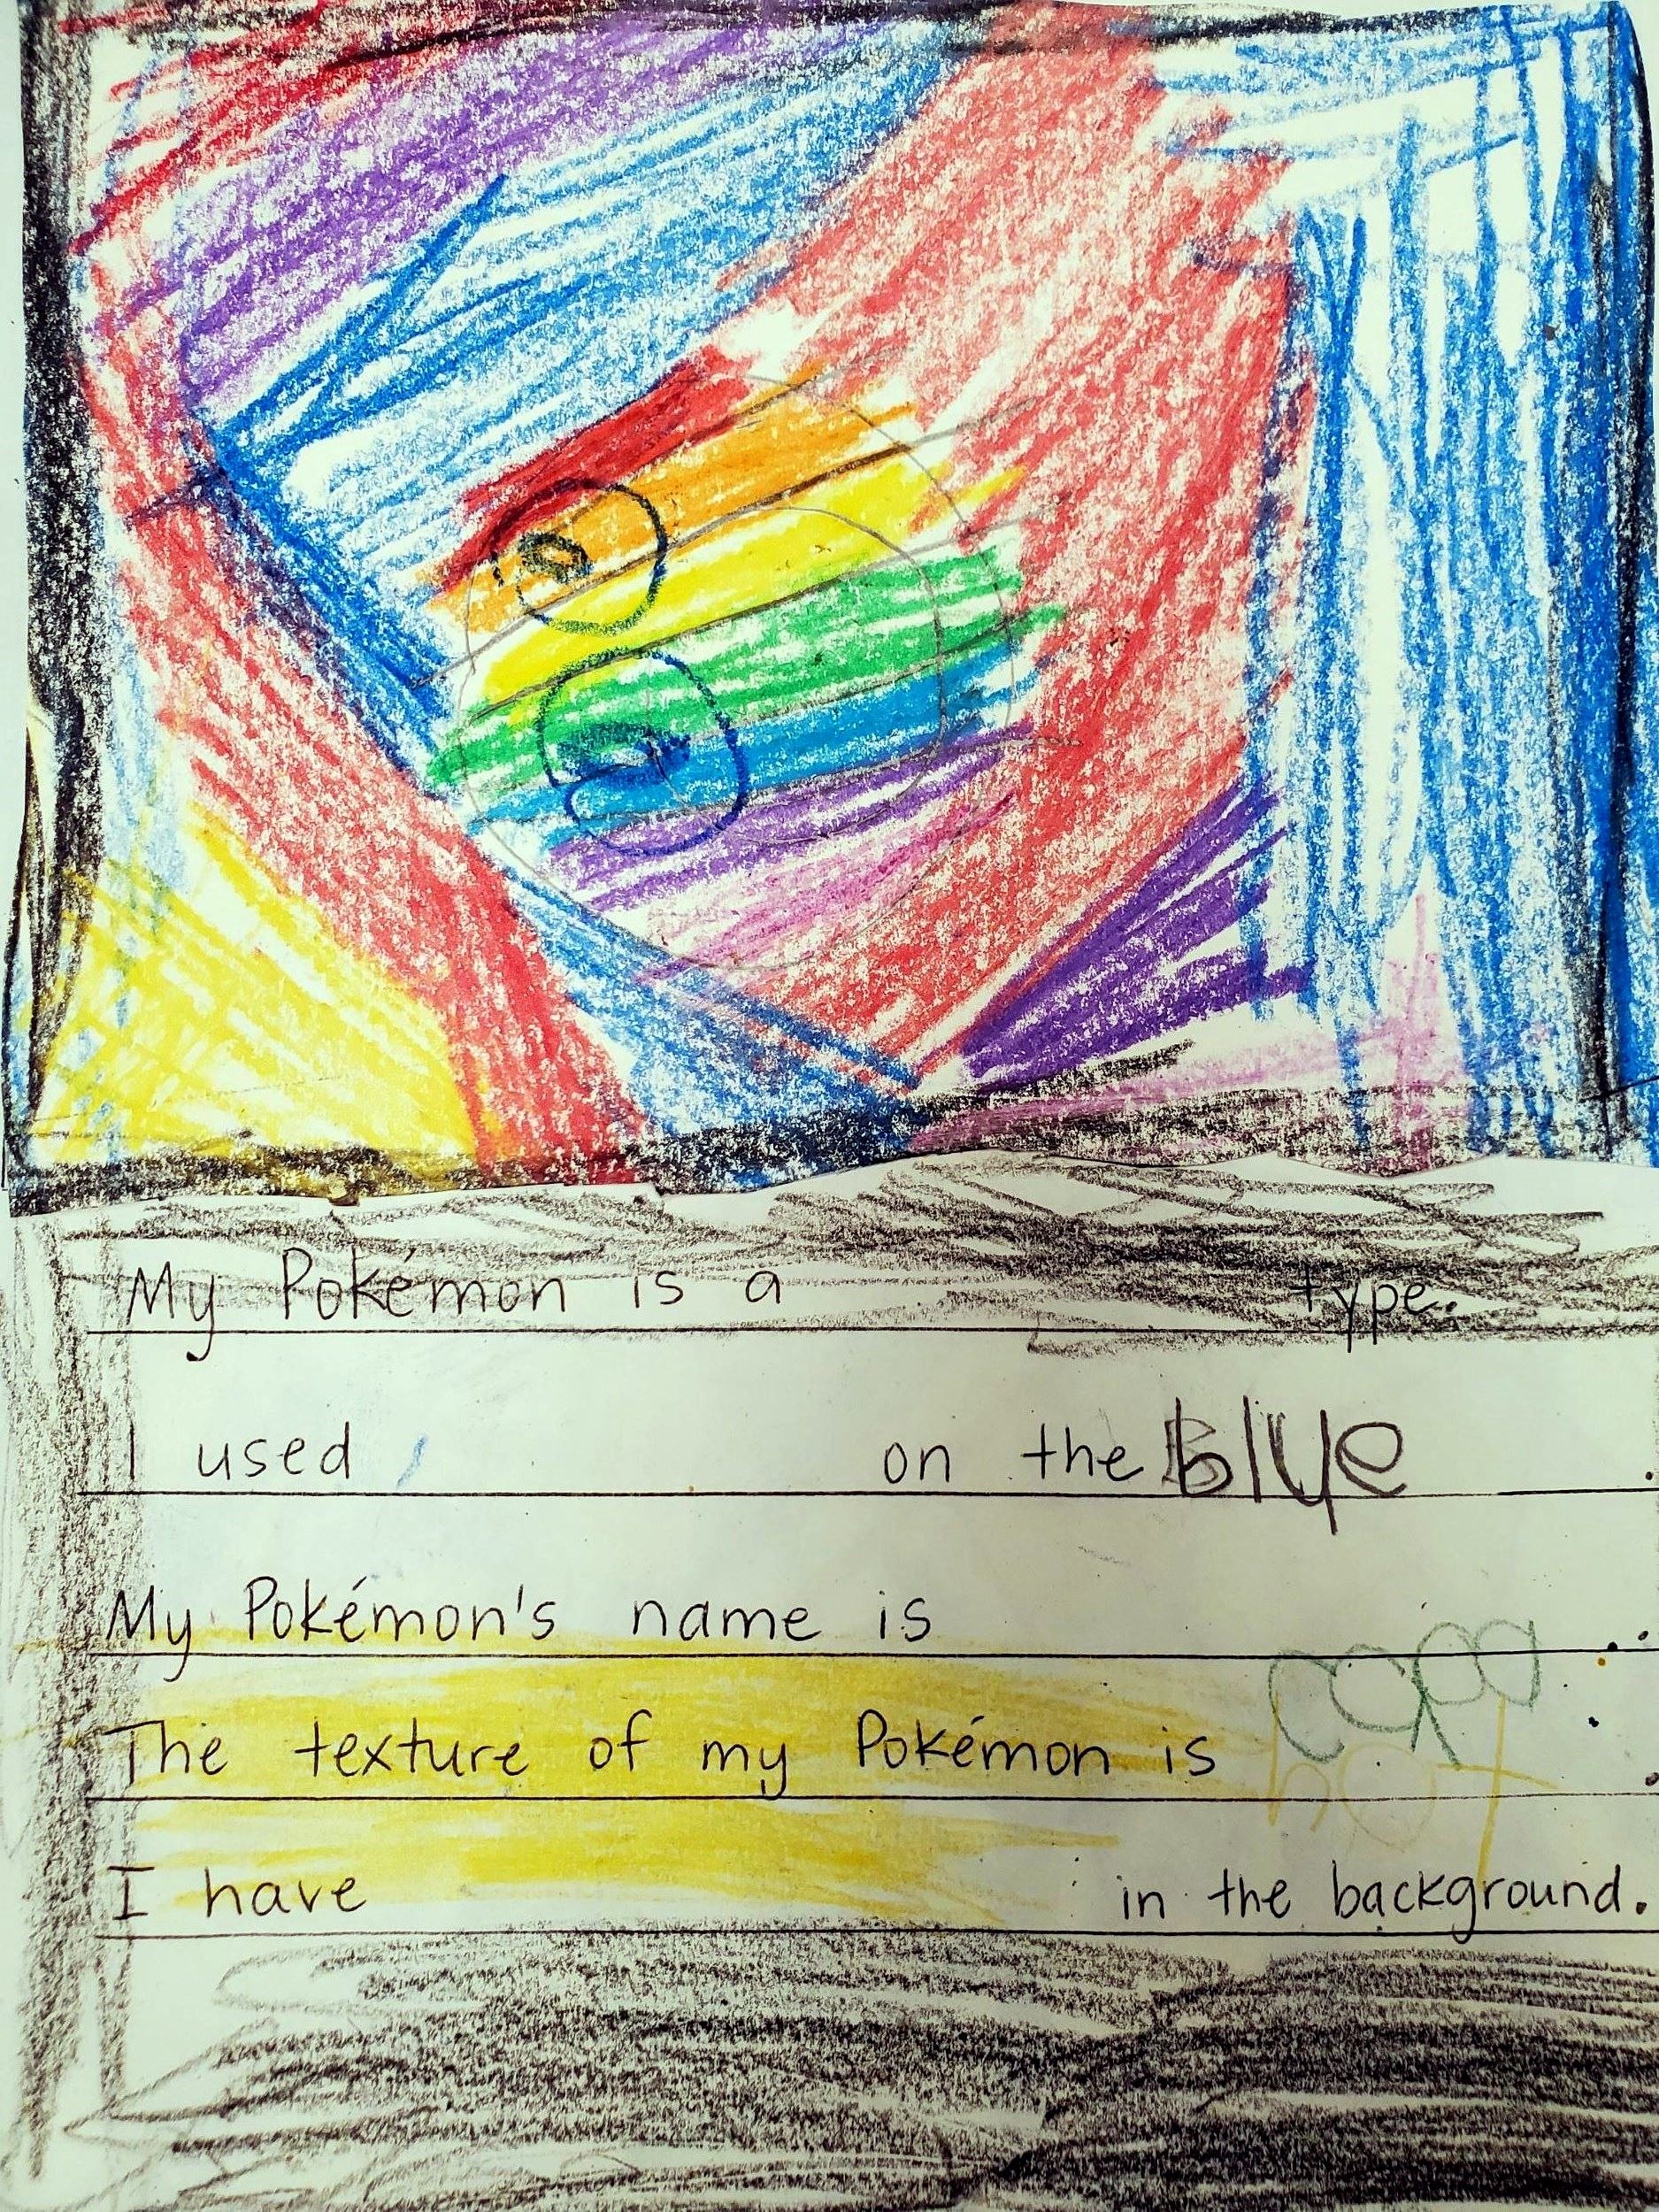 My Pokémon is a type.
I used on the blue .
My Pokémon's name is .
The texture of my Pokémon is hot .
I have in the background.